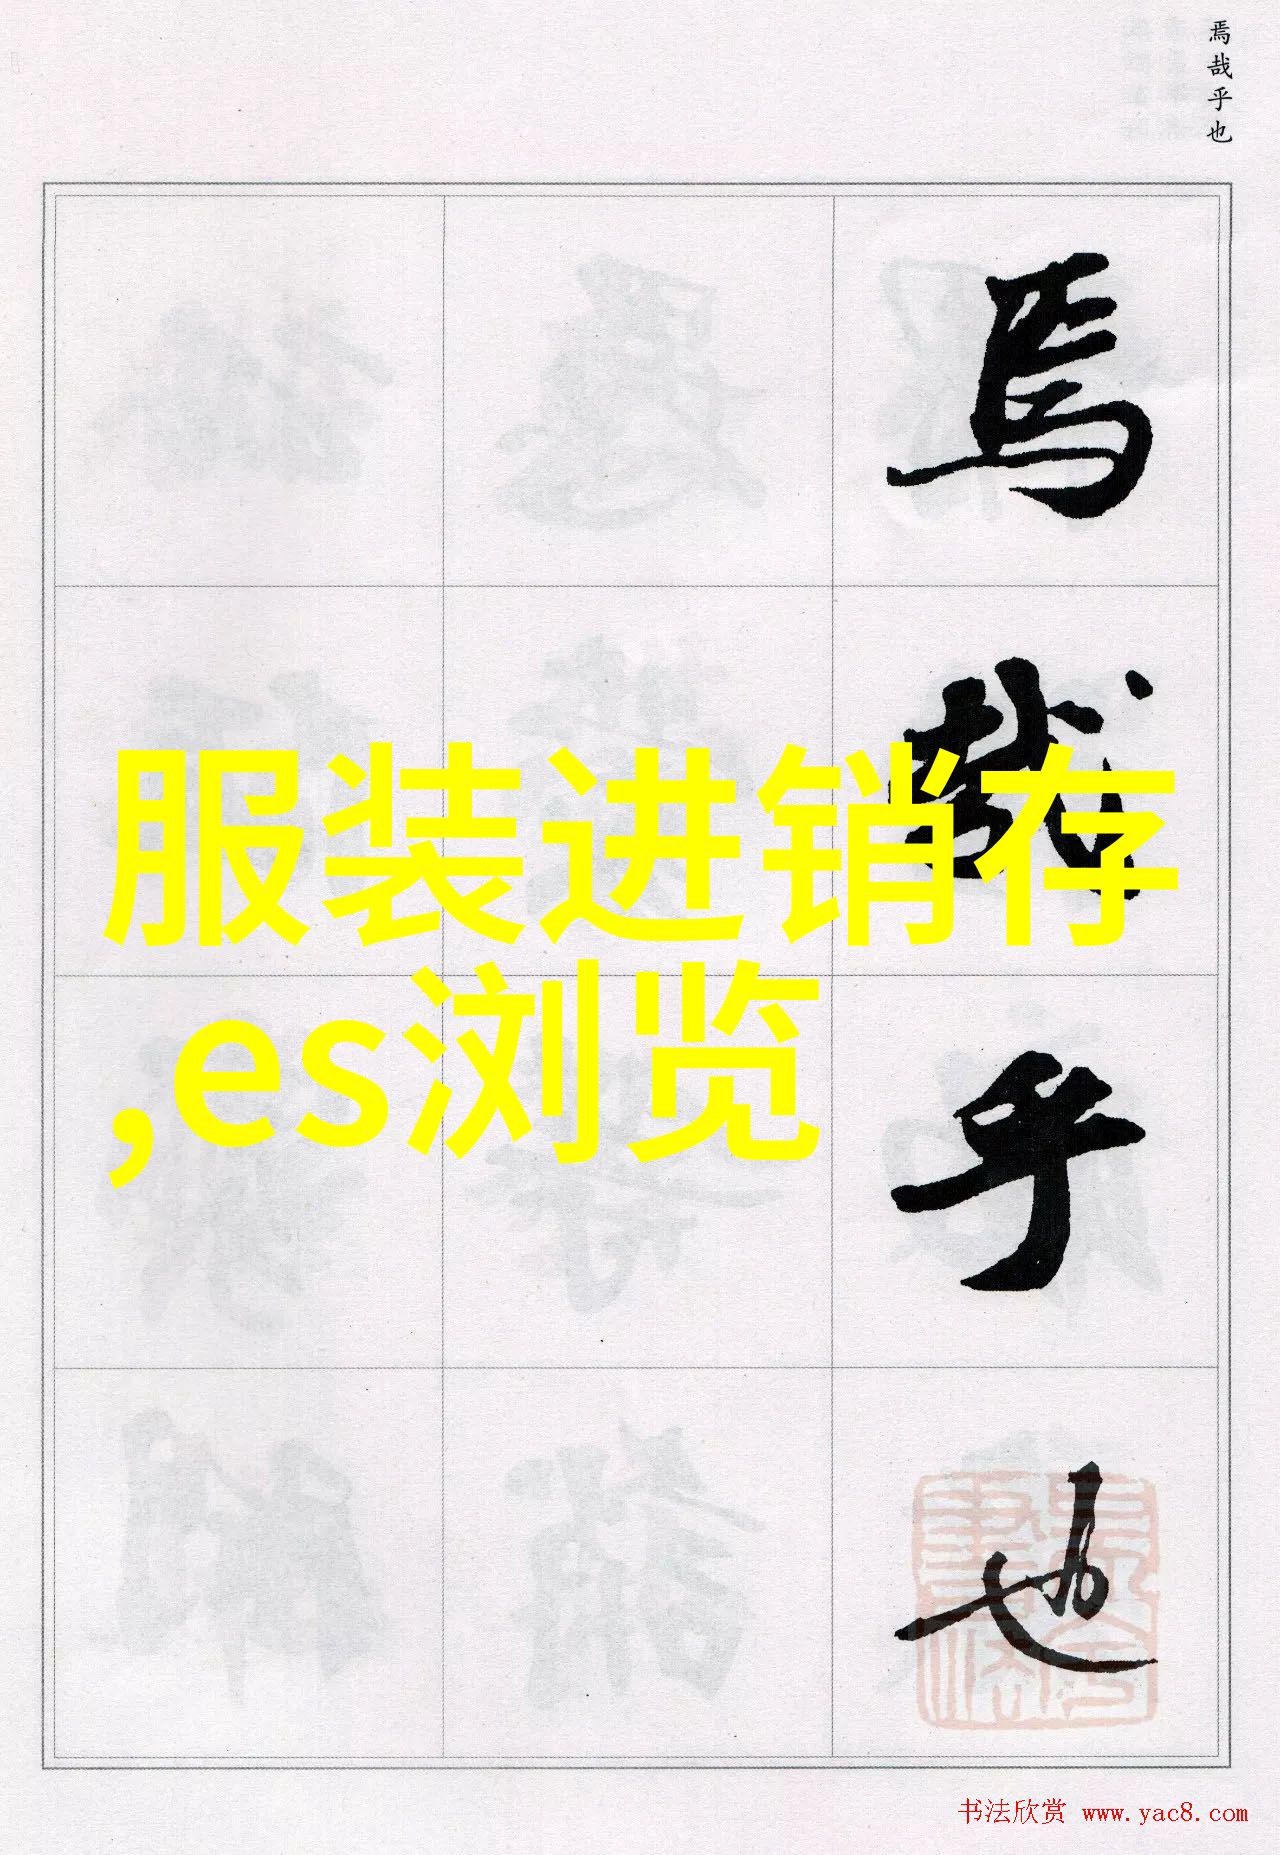 焉哉乎也
焉
哉
乎
也
服装进销存
,es浏览
书法欣赏 www.yac8.com